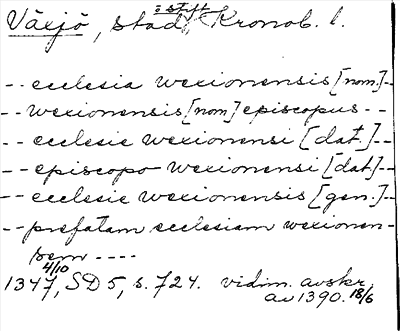 Växjö, stad o stift, Kronob. l.
-- ecclesia wexionensis [nom.] --
-- wexionensis [nom] episcopus --
-- ecclesie wexionensi [dat.] --
-- episcopo wexionensi [dat.] --
-- ecclesie wexionensis [gen.] --
-- prefatam ecclesiam wexionen-
sem ----
1347 4/10, SD 5, s. 724. vidim. avskr.
av 1390. 18/6